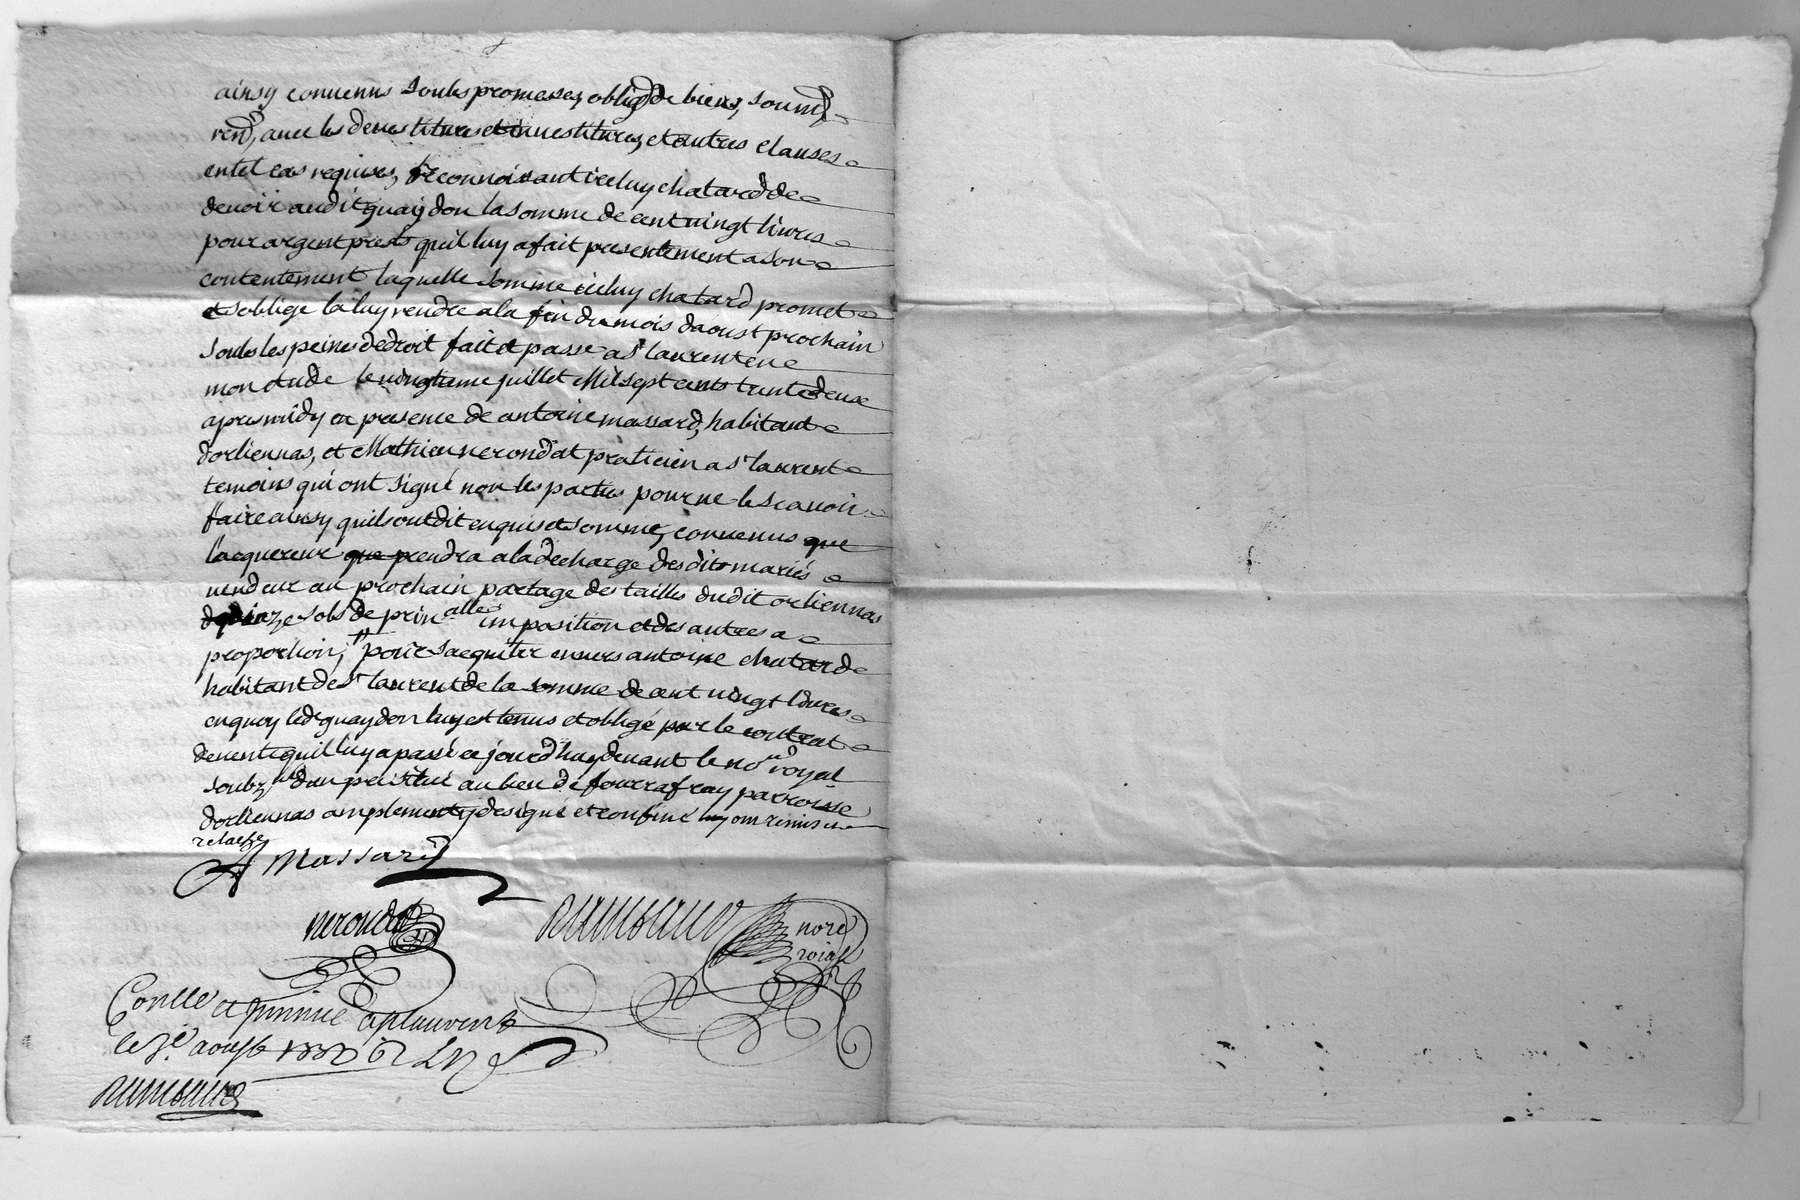 ainsy convenus soubs promesses, oblig.on de biens, soumis.
ren.on, avec les devestitures et investitures, et autres clauses
en tel cas requises, reconnoissant icelluy chatard de
devoir audit quaydon la somme de cent vingt livres
pour argent presté qu'il luy a fait presentement a son
contentement laquelle somme icelluy chatard promet
et soblige la luy rendre a la fin du mois daoust prochain
soubs les peines de droit fait et passé a St laurent en
mon etude le vingtieme juillet Mil sept cents trente deux
apres midy en presence de antoine massard, habitant
dorliennas, et Mathieu nerondat praticien a St laurent
temoins qui ont signé non les parties pour ne le scavoir
faire ainsy quils ont dit enquis et sommé, convenus que
lacquereur que prendra a la decharge desdits mariés
vendeur au prochain partage des tailles dudit orliennas
quinze sols de prin.alle imposition et des autres a
proportion, pour sacquiter envers antoine chatard
habitant de St laurent de la somme de cent vingt livres
en quoy led quaydon luy est tenus et obligé par le contrat
de vente quil luy a passé ce jourd'huy devant le no.re royal
soubz.né dun pré situé au lieu de fourrafray parroisse
dorliennas amplement y designé et confiné
A Massard
nerondat
Rambaud nore
roial
Conllé et jnsinué a St laurent
le 3e. aoust 1732
Rambaud